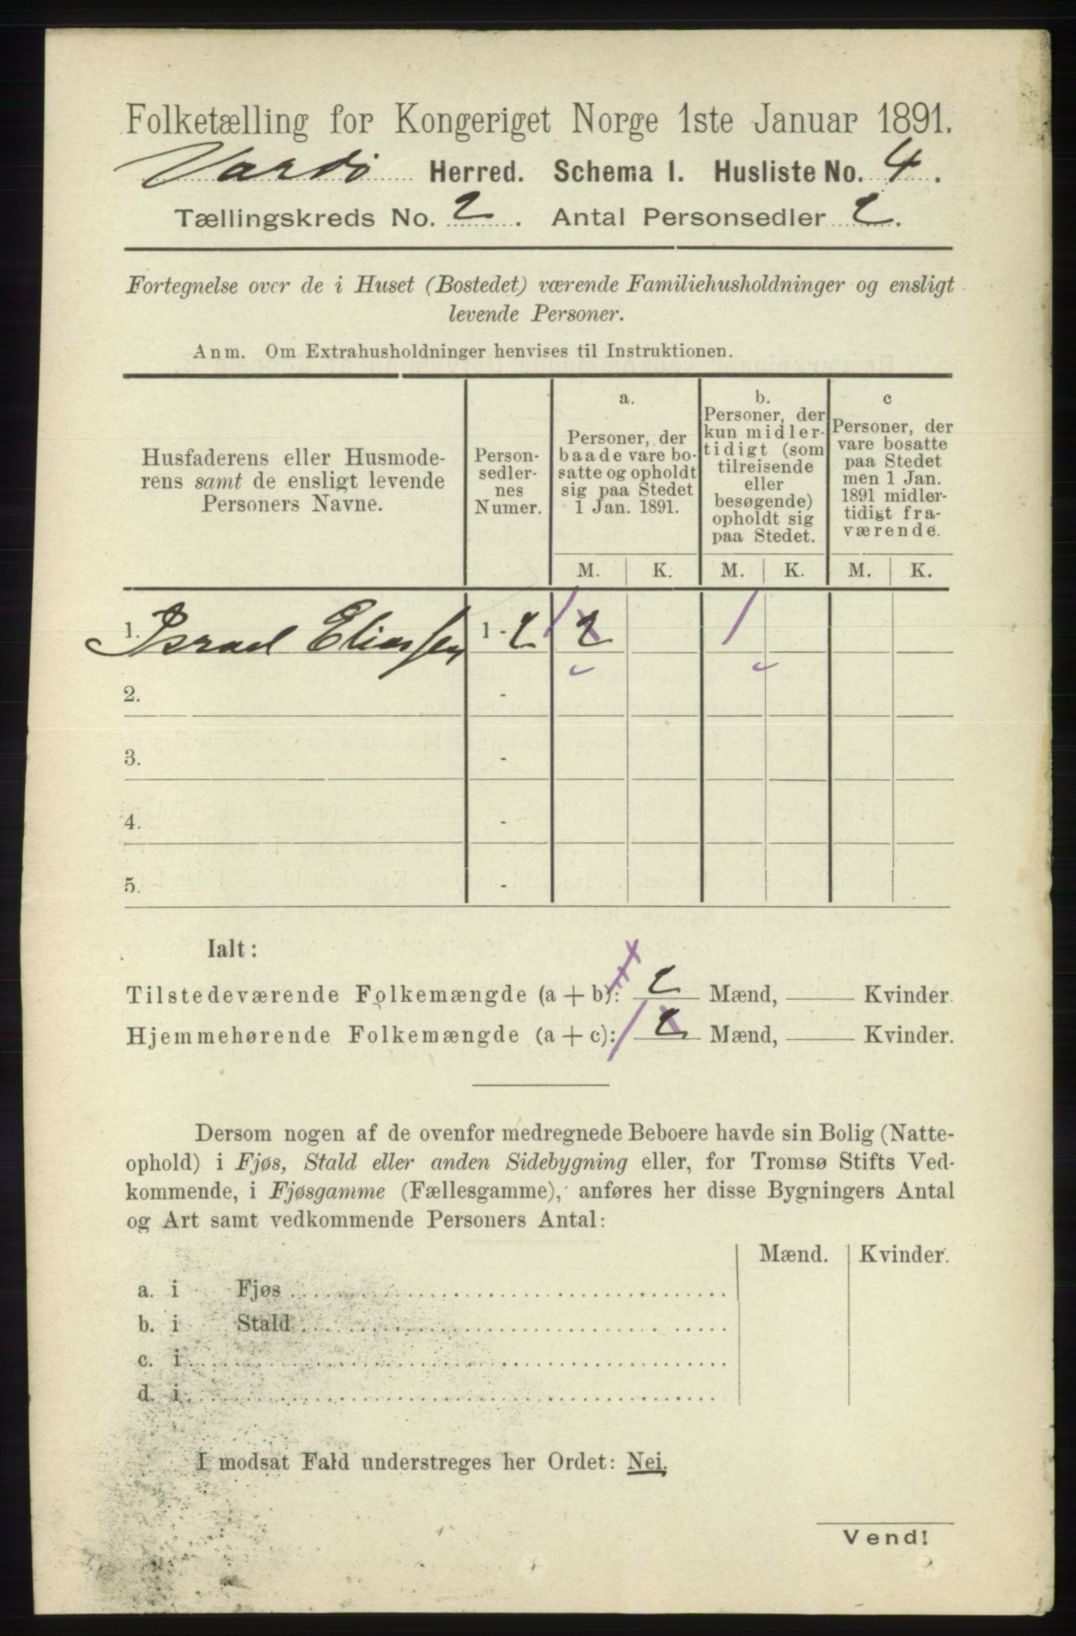 Folketælling for Kongeriget Norge 1ste Januar 1891.
Vardö Herred. Schema I. Husliste No. 4.
Tællingskreds No. 2. Antal Personsedler 2.
Fortegnelse over de i Huset (Bostedet) værende Familiehusholdninger og ensligt
levende Personer.
Anm. Om Extrahusholdninger henvises til Instruktionen.
Husfaderens eller Husmode-
rens samt de ensligt levende
Personers Navne.
Person-
sedler-
nes
Numer.
a.
Personer, der
baade vare bo-
satte og opholdt
sig paa Stedet
1 Jan. 1891.
b.
Personer, der
kun midler-
tidigt (som
tilreisende
eller
besøgende)
opholdt sig
paa Stedet.
c
Personer, der
vare bosatte
paa Stedet
men 1 Jan.
1891 midler-
tidigt fra-
værende.
M. K. M. K. M. K.
1. Israel Eliassen 1 - 2 1 2 1
2. -
3. -
4. -
5. -
Ialt:
Tilstedeværende Folkemængde (a + b): 2 Mænd, Kvinder.
Hjemmehørende Folkemængde (a + c): 1 2 Mænd, Kvinder.
Dersom nogen af de ovenfor medregnede Beboere havde sin Bolig (Natte-
ophold) i Fjøs, Stald eller anden Sidebygning eller, for Tromsø Stifts Ved-
kommende, i Fjøsgamme (Fællesgamme), anføres her disse Bygningers Antal
og Art samt vedkommende Personers Antal:
Mænd. Kvinder.
a. i Fjøs
b. i Stald
c. i
d. i
I modsat Fald understreges her Ordet: Nei.
Vend!